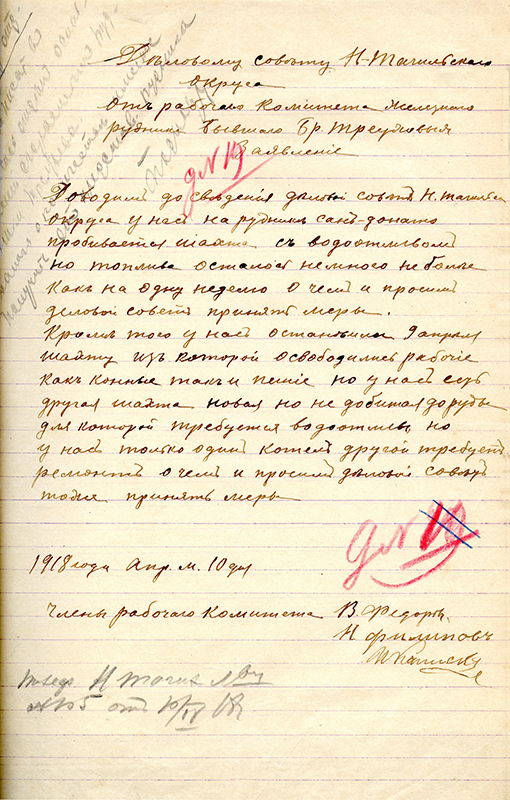 Дѣловому совѣту Н-Тагильскаго
округа
отъ рабочаго комитета Железнаго
рудника Бывшаго Бр. Треуховыя
Заявленіе
Доводимъ до сведения дѣловой советъ Н. тагильс
округа у насъ на рудникѣ санъ-донато
пробивается шахта съ водоотливомъ
но топлива осталось немного не более
какъ на одну неделю о чемъ и просимъ
деловой советъ принять меры.
Кромѣ того у насъ остановили 9 апреля
шахту изъ которой освободились рабочіе
какъ конные такъ и пешіе но у насъ есть
другая шахта новая но не добитая до руды
для которой требуется водоотливъ но
у насъ только одинъ котелъ другой требуетъ
ремонтъ о чемъ и просимъ дѣловой советъ
тоже принять меры
д N
1918 года Апр. м. 10 дня
Члены рабочаго комитета В. Федор
Н Филиповъ
Н Тагил
№ 105 от 10/IV 18